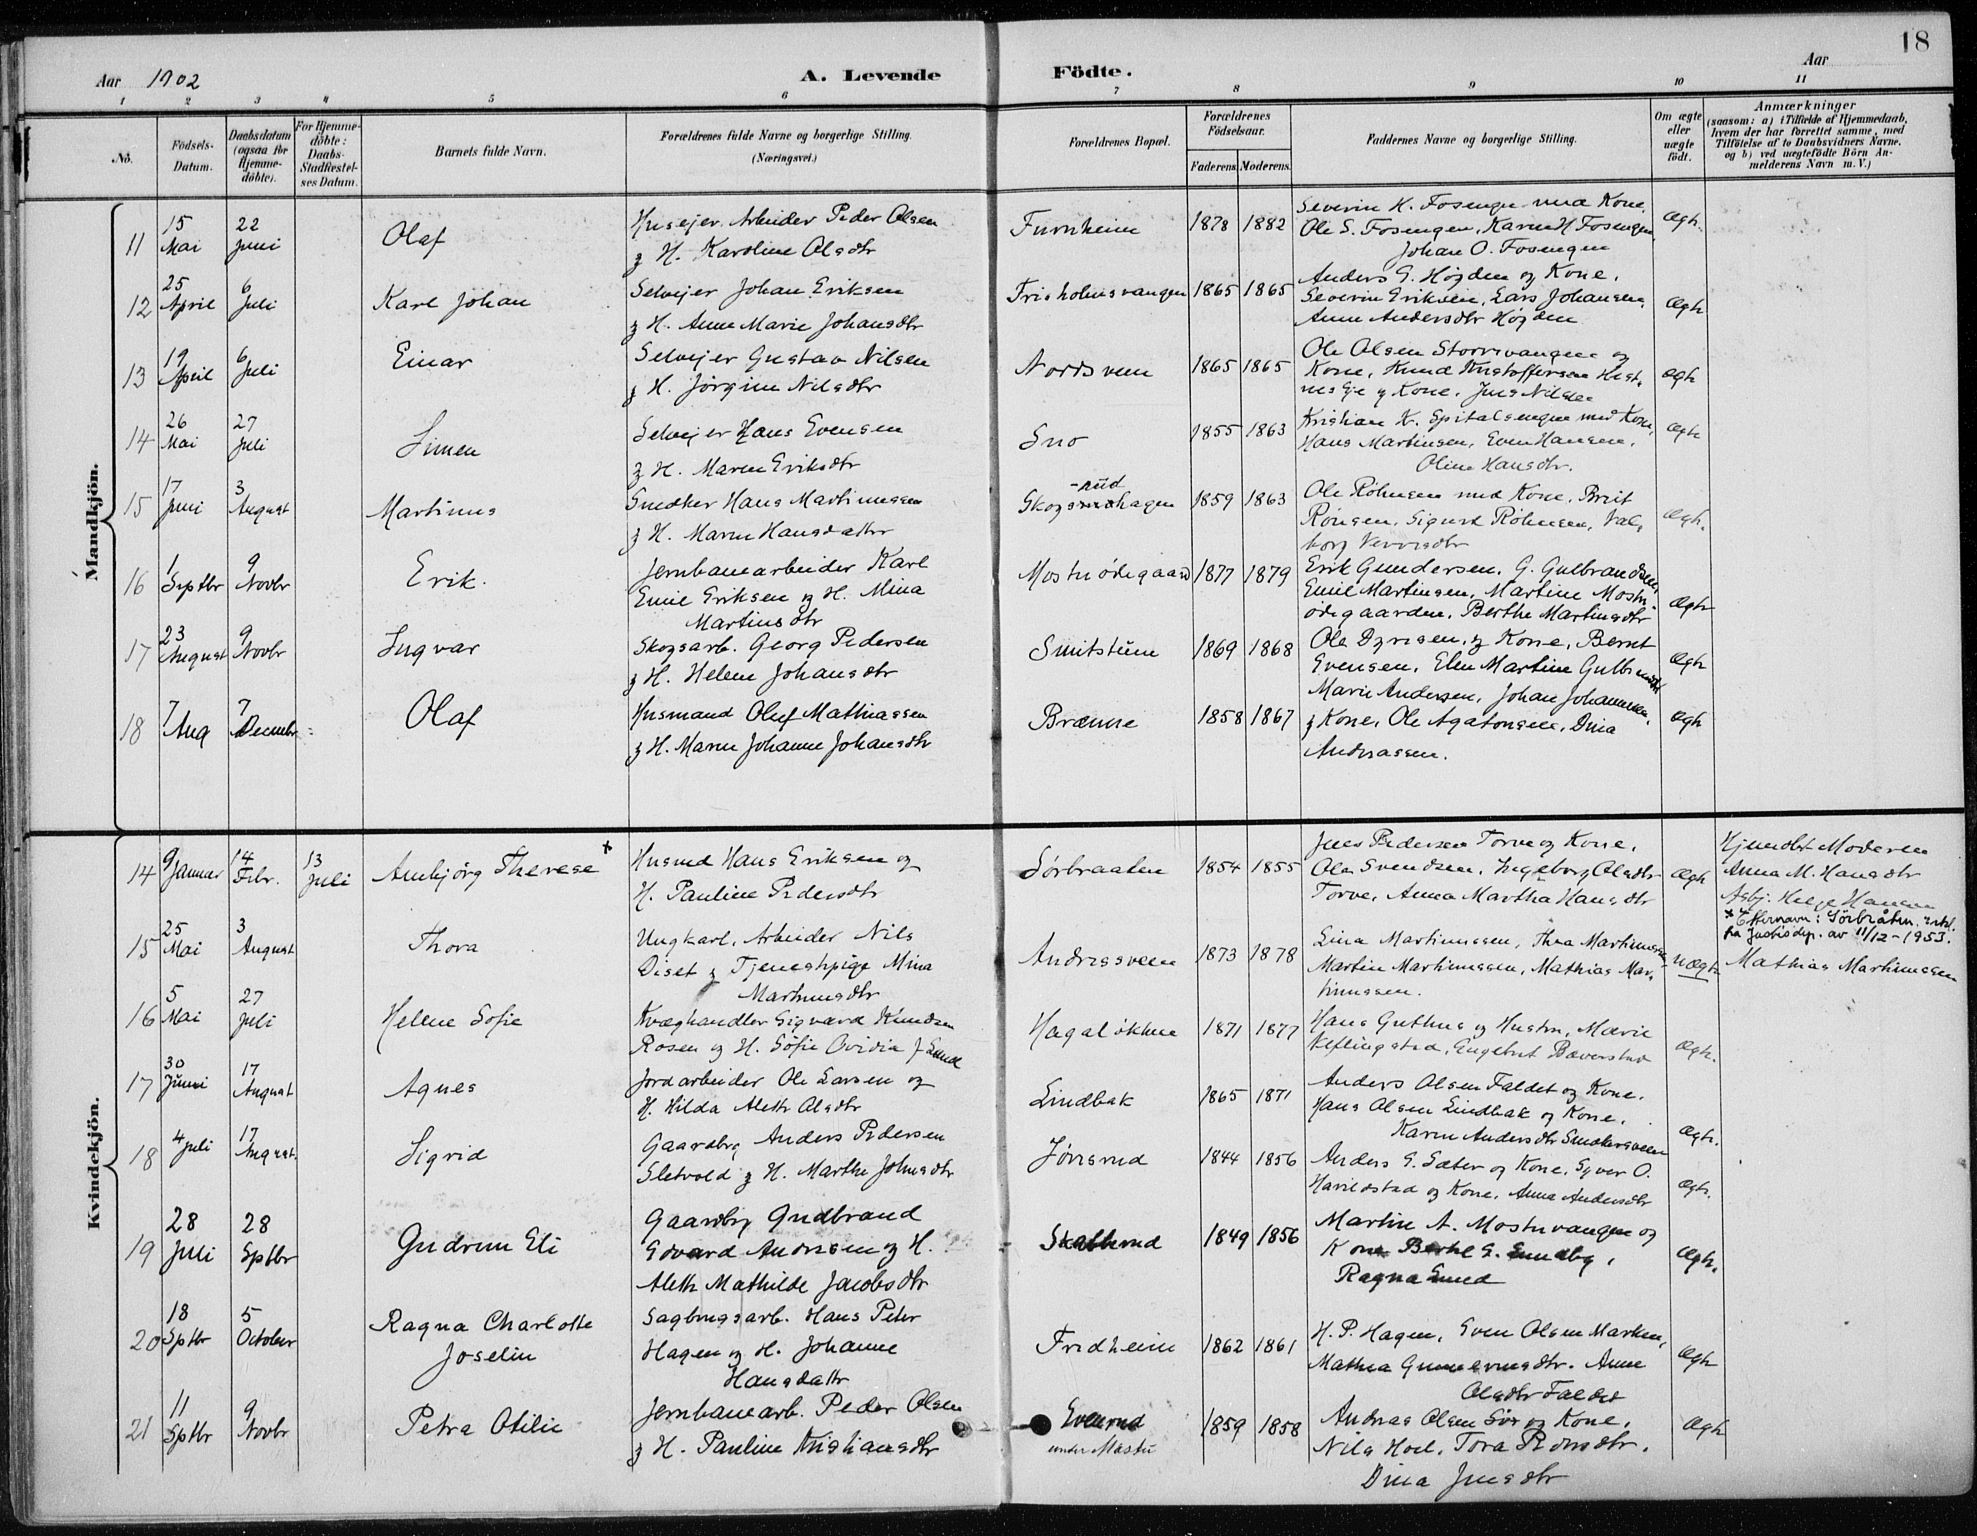 18
Aar 1902
A. Levende Födte.
Aar
1 2 3 4 5 6 7 8 9 10 11
No.
Födsels-Datum.
Daabsdatum (ogsaa for Hjemme-döbte).
For Hjemme-döbte: Daabs-Stadfæstel-ses Datum.
Barnets fulde Navn.
Forældrenes fulde Navne og borgerlige Stilling. (Næringsvei.)
Forældrenes Bopæl.
Forældrenes Födselsaar.
Faderens. Moderens.
Faddernes Navne og borgerlige Stilling.
Om ægte eller uægte födt.
Anmærkninger
(saasom: a) i Tilfælde af Hjemmedaab,
hvem der har forrettet samme, med
Tilföielse af to Daabsvidners Navne.
og b) ved uægtefödte Börn An-
melderens Navn m. V.)
Mandkjön.
11 15 Mai 22 Juni Olaf
Husejer. Arbeider Peder Olsen
og H. Karoline Olsdtr
Furuheim 1878 1882
Severin H. Fosengen med Kone,
Ole S. Fosengen, Karen H Fosengen,
Johan O. Fosengen
Ægte.
12 25 April 6 Juli Karl Johan
Selvejer Johan Eriksen
og H. Anne Marie Johansdtr
Frisholmsvangen 1865 1865
Anders G. Högden og Kone,
Severin Eriksen, Lars Johansen,
Anne Andersdtr Högden
Ægte
13 19 April 6 Juli Einar
Selvejer Gustav Nilsen
og H. Jörgine Nilsdtr
Nordsveen 1865 1865
Ole Olsen Storrvangen og
Kone, Knud Kristoffersen
og Kone, Jens Nilsen
Ægte
14 26 Mai 27 Juli Simen
Selvejer Hans Evensen
og H. Maren Eriksdtr
Sno 1855 1863
Kristian K. Spitalsengen med Kone,
Hans Martinsen, Even Hansen,
Oline Hansdtr.
Ægte
15 17 Juni 3 August Martinus
Snedker Hans Martinussen
og H. Maren Hansdatter
-rud
Skogsrudhagen 1859 1863
Ole Röhnsen med Kone, Berit
Rönsen, Sigurd Röhnsen, Val-
borg
Ægte.
16 1 Septbr 9 Novbr Erik.
Jernbanearbeider Karl
Emil Eriksen og H. Mina
Martinsdtr
Mostuödegaard 1877 1879
Erik Gundersen, G. Gulbrandsen,
Emil Martinsen, Martine Mostu-
ödegaarden, Berthe Martinsdtr
Ægte
17 23 August 9 Novbr Ingvar
Skogsarb. Georg Pedersen
og H. Helene Johansdtr
Smitstuen 1869 1868
Ole Dyresen og Kone, Bernt
Evensen, Elen Martine Gulbrandsdtr
Ægte
18 7 Aug 7 Decembr Olaf
Husmand Oluf Mathiassen
og H. Maren Johanne Johansdtr
Brænne 1858 1867
Marie Andersen, Johan Johannesen,
og Kone, Ole Agatonsen, Dina
Andreassen.
Ægte
Kvindekjön.
14 9 Januar 14 Febr. 13 Juli Arnbjörg Therese +
Husmd Hans Eriksen og
H. Pauline Pedersdtr
Sörbraaten 1854 1855
Jens Pedersen Torve og Kone,
Olea Svendsen, Ingeborg Olsdtr
Torve, Anna Martha Hansdtr
Ægte
Hjemdöbt Moderen
Anna M. Hansdtr
Asbj. Helge Hansen
+ Efternavn: Sörbråten. Inkl.
fra Justisdep. av 11/12-1953.
15 25 Mai 3 August Thora
Ungkarl, Arbeider Nils
Diset og Tjenestpige Mina
Martinusdtr
Andersveen 1873 1878
Lina Martinussen, Thea Martinussen,
Martin Martinussen, Mathias Mar-
tinussen.
uægte
Mathias Martinussen
16 5 Mai 27 Juli Helene Sofie
Kvæghandler Sigvard Knudsen
Rosen og H. Sofie Ovidia f. Lund
Hagalökken 1871 1877
Hans Guthus og Hustru, Marie
Ægte.
17 30 Juni 17 August Agnes
Jordarbeider Ole Larsen og
H. Hilda Alette Olsdtr
Lindbak 1865 1871
Anders Olsen Faldet og Kone,
Hans Olsen Lindbak og Kone,
Karen Andersdtr Snekersveen
Ægte.
18 4 Juli 17 August. Sigrid
Gaardbrg Anders Pedersen
Sletvold og H. Marthe Johnsdtr
Jönsrud 1844 1856
Anders G. Sæter og Kone, Syver O.
Harildstad og Kone, Anna Andersdtr
Ægte.
19 28 Juli 28 Septbr Gudrun Eli
Gaardbrg Gudbrand
Edvard Andersen og H.
Alette Mathilde Jacobsdtr
Skatterud 1849 1856
Martin A. Mostuvangen og
Kone Berthe G. Sundby,
Ragna Lund
Ægte.
20 18 Septbr 5 October Ragna Charlotte
Joselin
Sagbrugsarb. Hans Peter
Hagen og H. Johanne
Hansdatter
Fredheim 1862 1861
H. P. Hagen, Even Olsen Marken,
Mathea Gunnerusdtr. Anne
Olsdtr Faldet
Ægte
21 11 Septbr 9 Novbr Petra Otilie
Jernbanearb. Peder Olsen
og H. Pauline Kristiansdtr
Evenrud
under Mostu 1859 1858
Andreas Olsen Sör og Kone,
Nils Hoel, Tora Pedersdtr.
Dina Jensdtr
Ægte